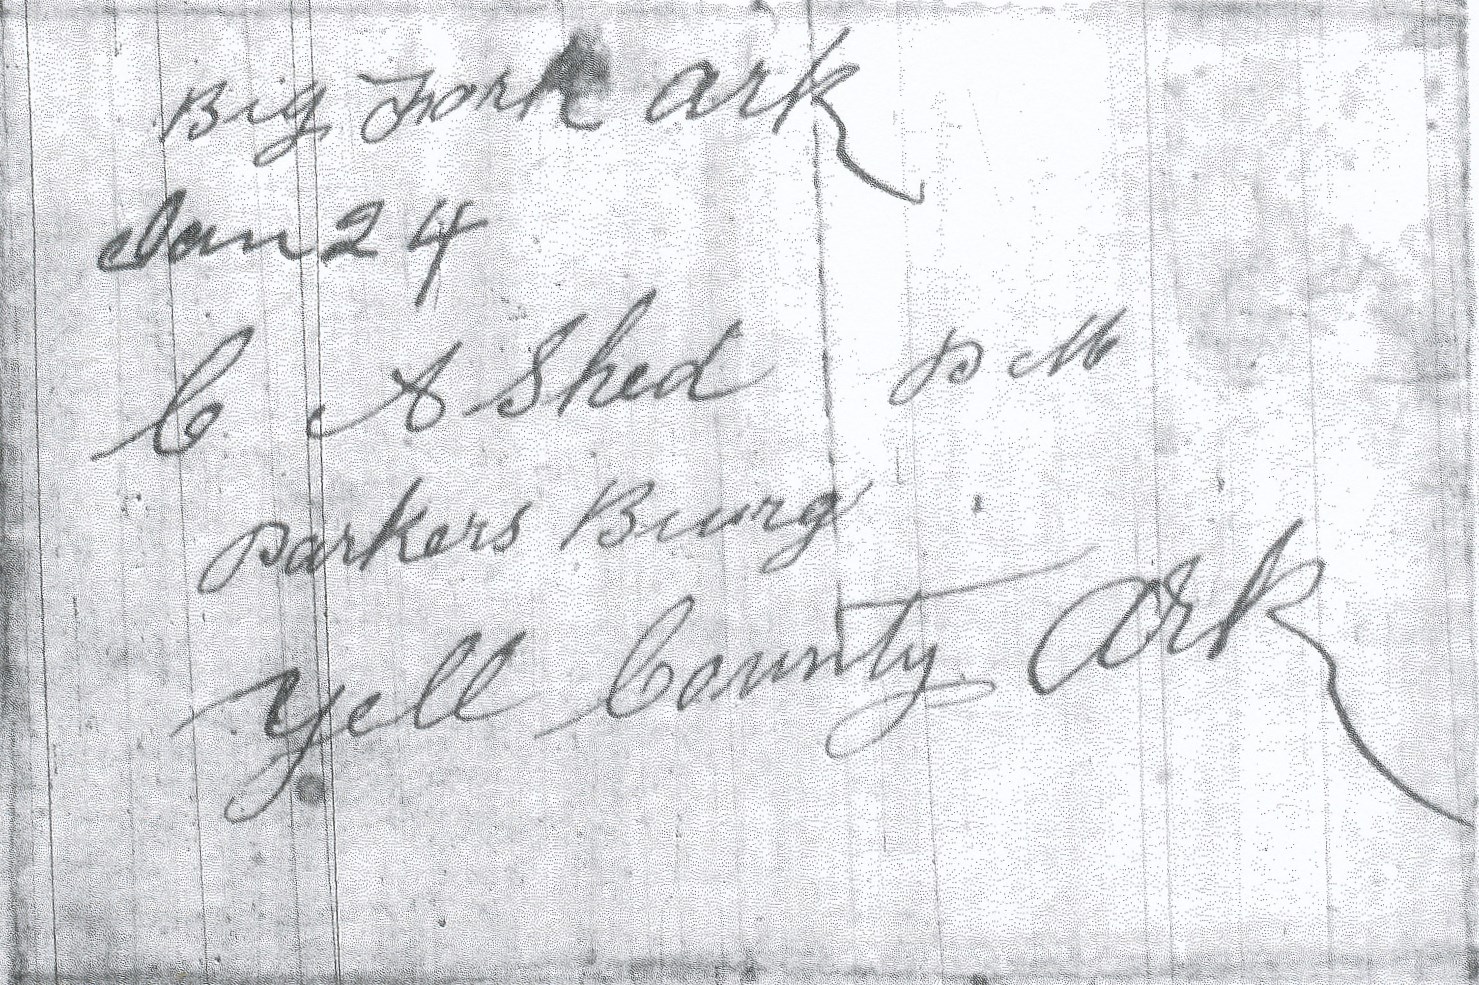 Big Fork Ark
Jan 24
C A Shed P M
Parkers Burg
Yell County Ark